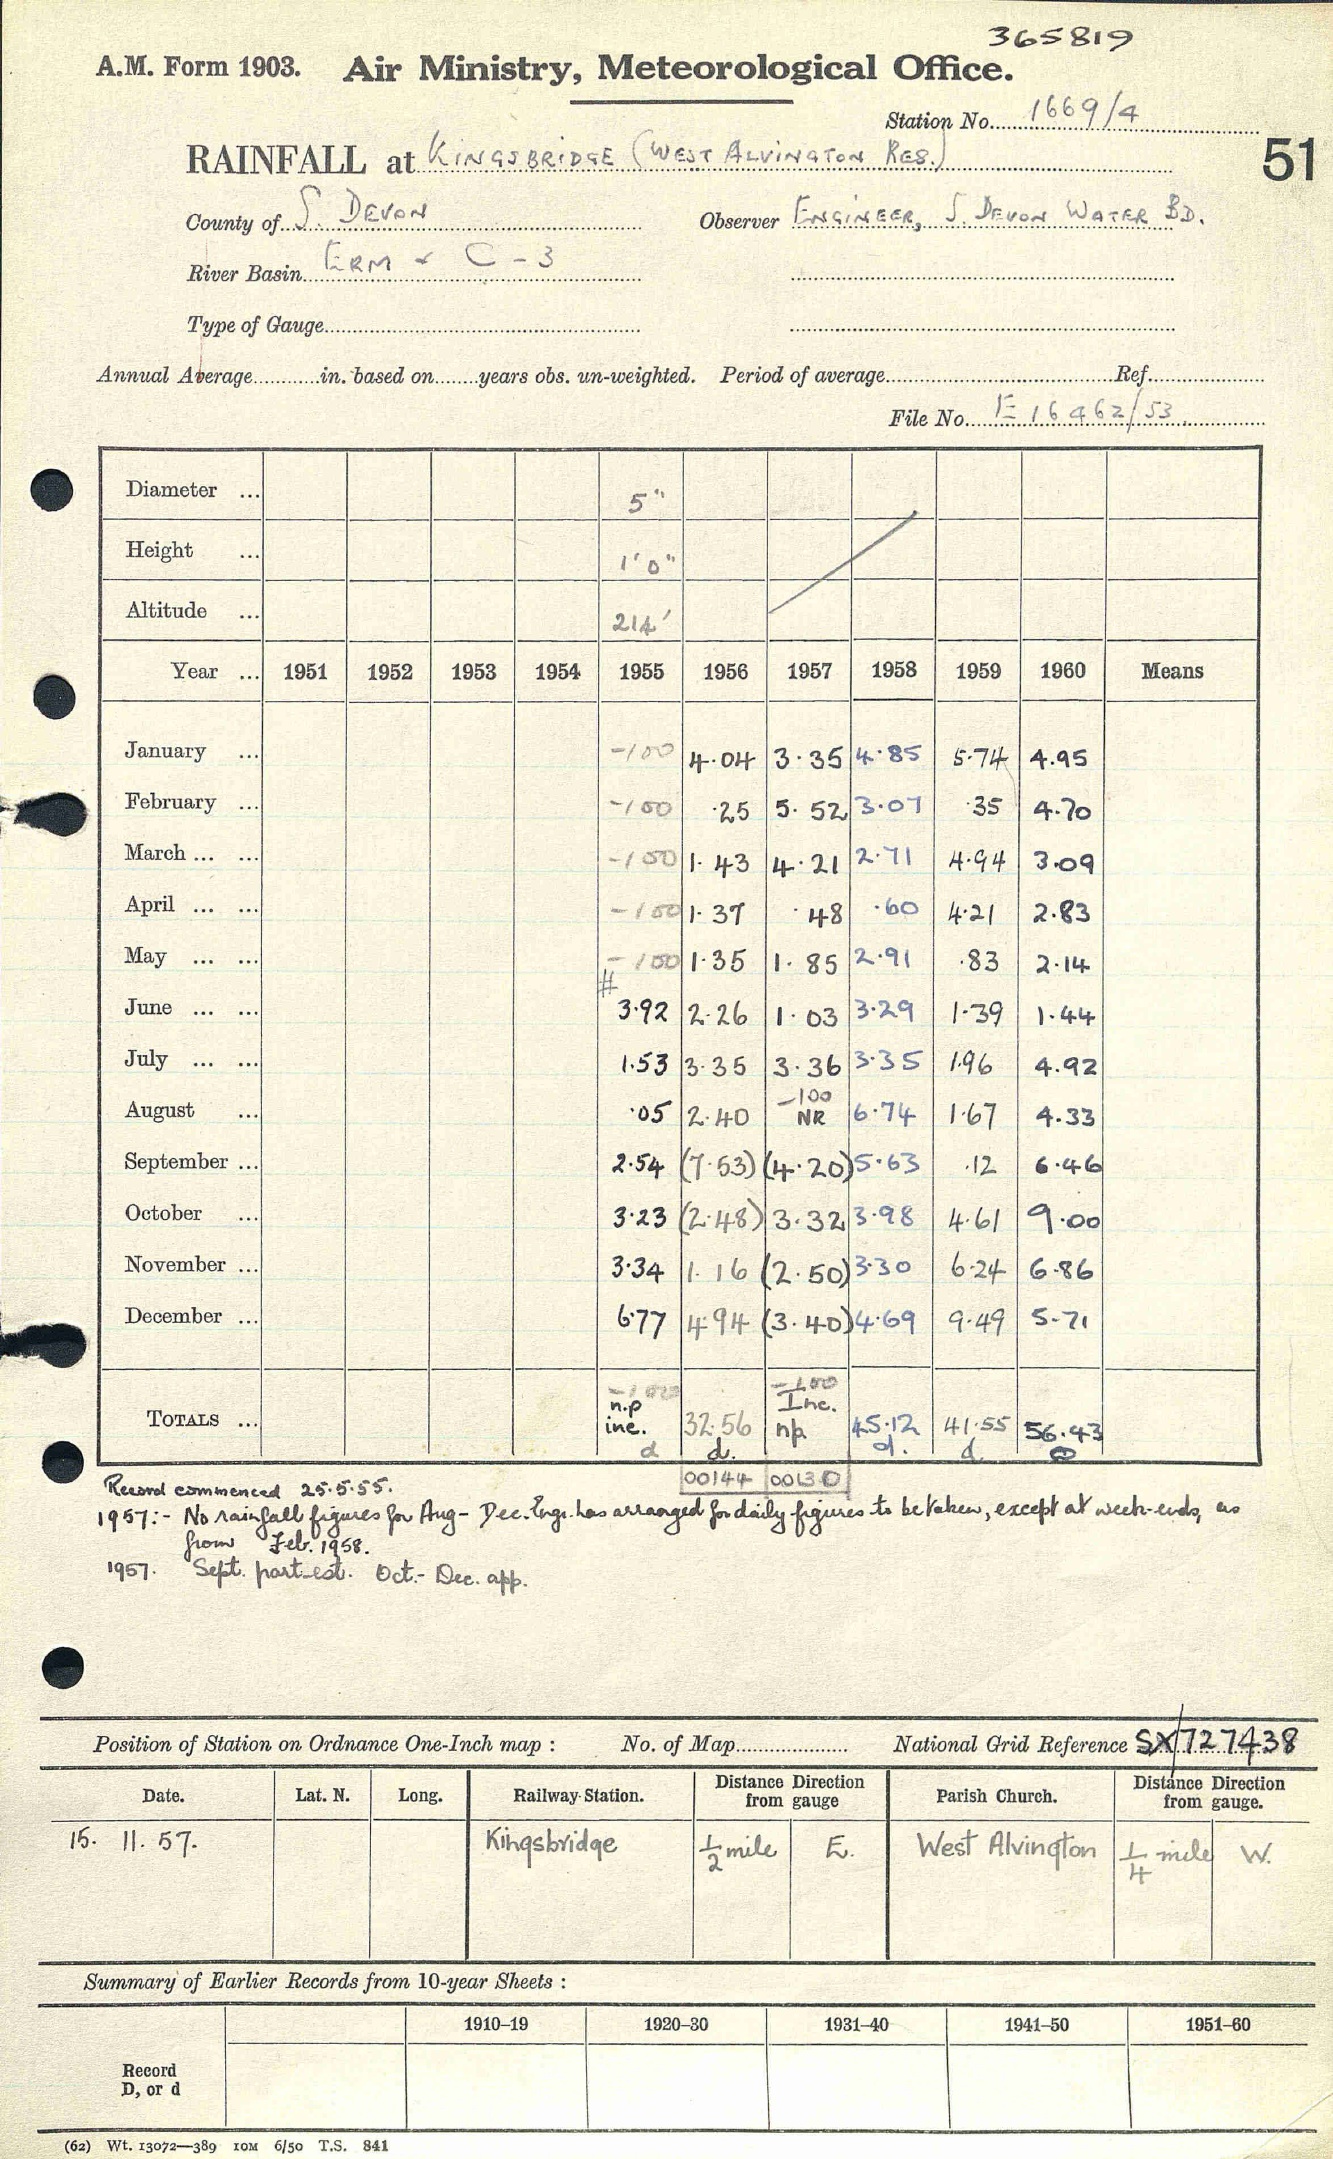 365819
A.M. Form 1903. Air Ministry, Meteorological Office.
Station No. 1669/4
RAINFALL at KINGSBRIDGE (WEST ALVINGTON RES.) 51
County of S. DEVON Observer ENGINEER, S. DEVON WATER BD.
River Basin ERM & C-3
Type of Gauge
Annual Average in. based on years obs. un-weighted. Period of average Ref.
File No. E 16462/53
Diameter ... 5"
Height ... 1'0"
Altitude ... 214'
Year ... 1951 1952 1953 1954 1955 1956 1957 1958 1959 1960 Means
January ... -100 4.04 3.35 4.85 5.74 4.95
February ... -100 .25 5.52 3.07 .35 4.70
March ... ... -100 1.43 4.21 2.71 4.94 3.09
April ... ... -100 1.37 .48 .60 4.21 2.83
May ... ... -100 1.35 1.85 2.91 .83 2.14
#
June ... ... 3.92 2.26 1.03 3.29 1.39 1.44
July ... ... 1.53 3.35 3.36 3.35 1.96 4.92
August ... .05 2.40 -100 NR 6.74 1.67 4.33
September ... 2.54 (7.53) (4.20) 5.63 .12 6.46
October ... 3.23 (2.48) 3.32 3.98 4.61 9.00
November ... 3.34 1.16 (2.50) 3.30 6.24 6.86
December ... 6.77 4.94 (3.40) 4.69 9.49 5.71
-100 -100
n.p Inc.
TOTALS ... inc. 32.56 np 45.12 41.55 56.43
d d. d. d.
00144 00130
Record commenced 25.5.55.
1957:- No rainfall figures for Aug - Dec. Engr. has arranged for daily figures to be taken, except at week-ends, as
from Feb. 1958.
1957. Sept. part est. Oct.- Dec. app.
Position of Station on Ordnance One-Inch map : No. of Map National Grid Reference SX/727438
Date. Lat. N. Long. Railway Station. Distance Direction from gauge Parish Church. Distance Direction from gauge.
15. 11. 57. Kingsbridge 1/2 mile E. West Alvington 1/4 mile W.
Summary of Earlier Records from 10-year Sheets :
1910–19 1920–30 1931–40 1941–50 1951–60
Record
D, or d
(62) Wt. 13072—389 10M 6/50 T.S. 841